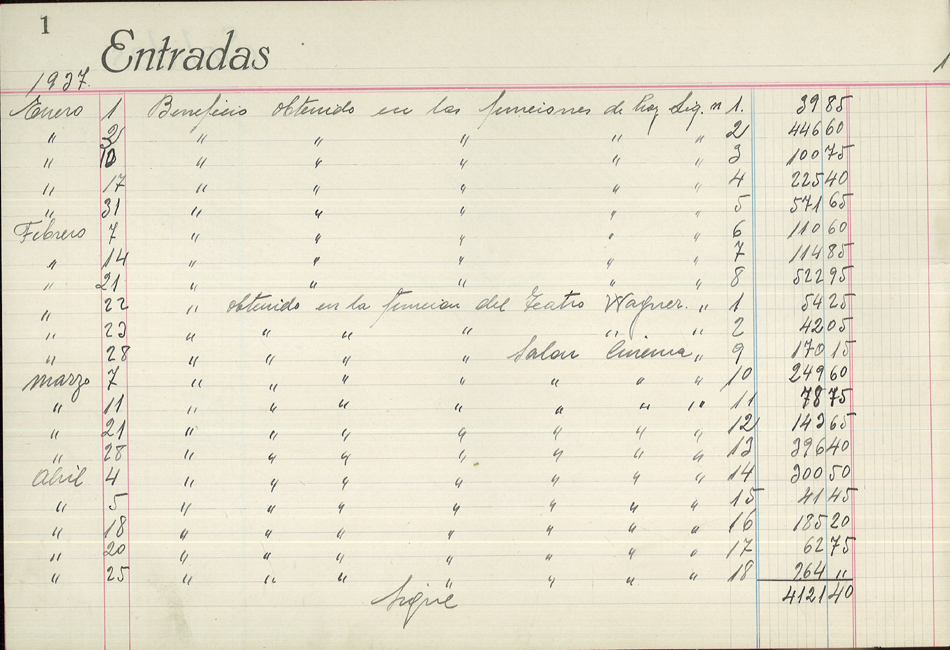 1
Entradas
1
1937.
Enero 1 Beneficio obtenido en las funciones de hoy Liq. n 1. 39 85
" 3 " " " " " 2 446 60
" 10 " " " " " 3 100 75
" 17 " " " " " 4 225 40
" 31 " " " " " 5 571 65
Febrero 7 " " " " " 6 110 60
" 14 " " " " " 7 114 85
" 21 " " " " " 8 522 95
" 22 " obtenido en la funcion del Teatro Wagner. " 1 54 25
" 23 " " " " " " 2 42 05
" 28 " " " " Salon Cinema " 9 170 15
Marzo 7 " " " " " " " 10 249 60
" 11 " " " " " " " 11 78 75
" 21 " " " " " " " 12 143 65
" 28 " " " " " " " 13 396 40
Abril 4 " " " " " " " 14 300 50
" 5 " " " " " " " 15 41 45
" 18 " " " " " " " 16 185 20
" 20 " " " " " " " 17 62 75
" 25 " " " " " " " 18 264 "
Sigue 4121 40